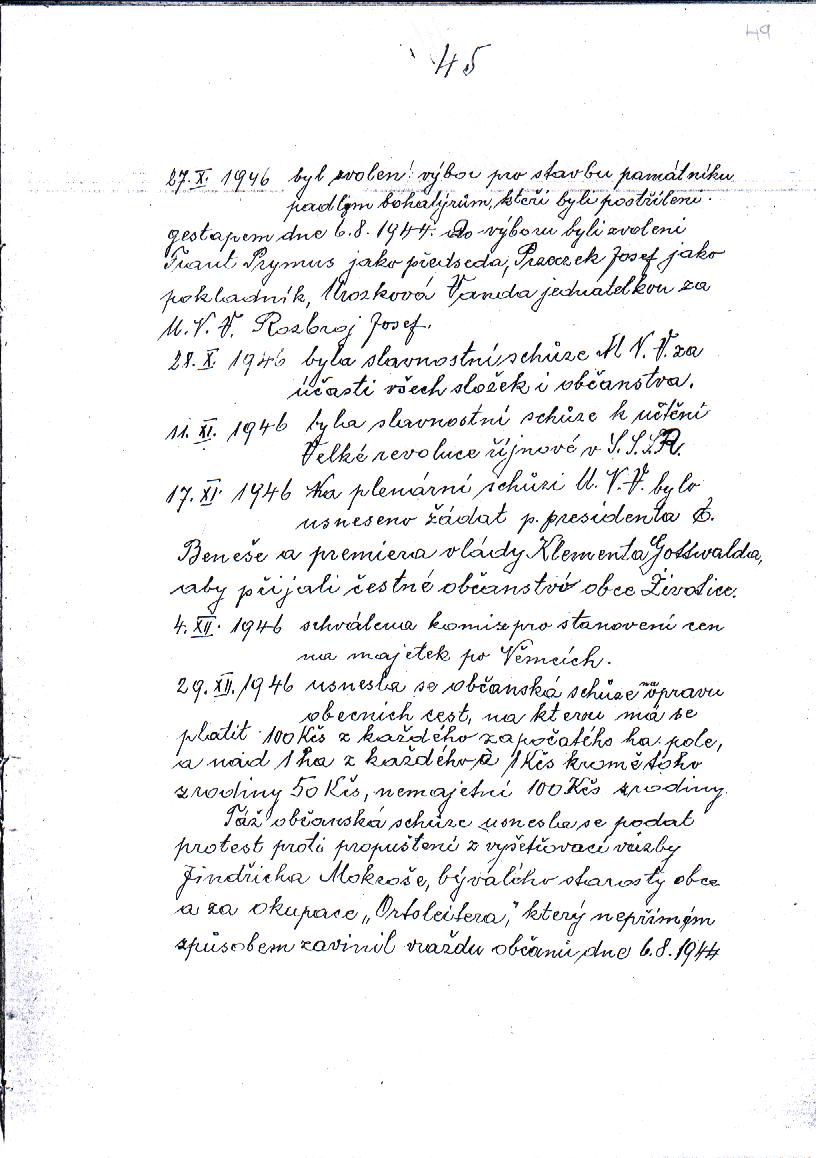 49
45
27. X. 1946 byl zvolen! výbor pro stavbu památníku
padlým bohatýrům, kteří byli postříleni
gestapem dne 6.8.1944. Do výboru byli zvoleni
Frant Prymus jako předseda, Przeczek Josef jako
pokladník, Mrozková Vanda jednatelkou za
M. N. V. Rozbroj Josef.
28. X. 1946 byla slavnostní schůze M N. V. za
účasti všech složek i občanstva.
11. XI. 1946 byla slavnostní schůze k uctění
Velké revoluce říjnové v S.S.S.R.
17. XI. 1946 Na plenární schůzi M. N. V. bylo
usneseno žádat p. presidenta E.
Beneše a premiera vlády Klementa Gottwalda,
aby přijali čestné občanství obce Životice.
4. XII. 1946 schválena komise pro stanovení cen
na majetek po Němcích.
29. XII. 1946 usnesla se občanská schůze na opravu
obecních cest, na kterou má se
platit 100 Kčs z každého započatého ha. pole,
a nad 1 ha z každého 1 Kčs kromě toho
z rodiny 50 Kčs, nemajetní 100 Kčs z rodiny.
Táž občanská schůze usnesla se podat
protest proti propuštění z vyšetřovací vazby
Jindřicha Mokroše, bývalého starosty obce
a za okupace „Ortsleitera," který nepřímým
způsobem zavinil vraždu občanů dne 6.8.1944